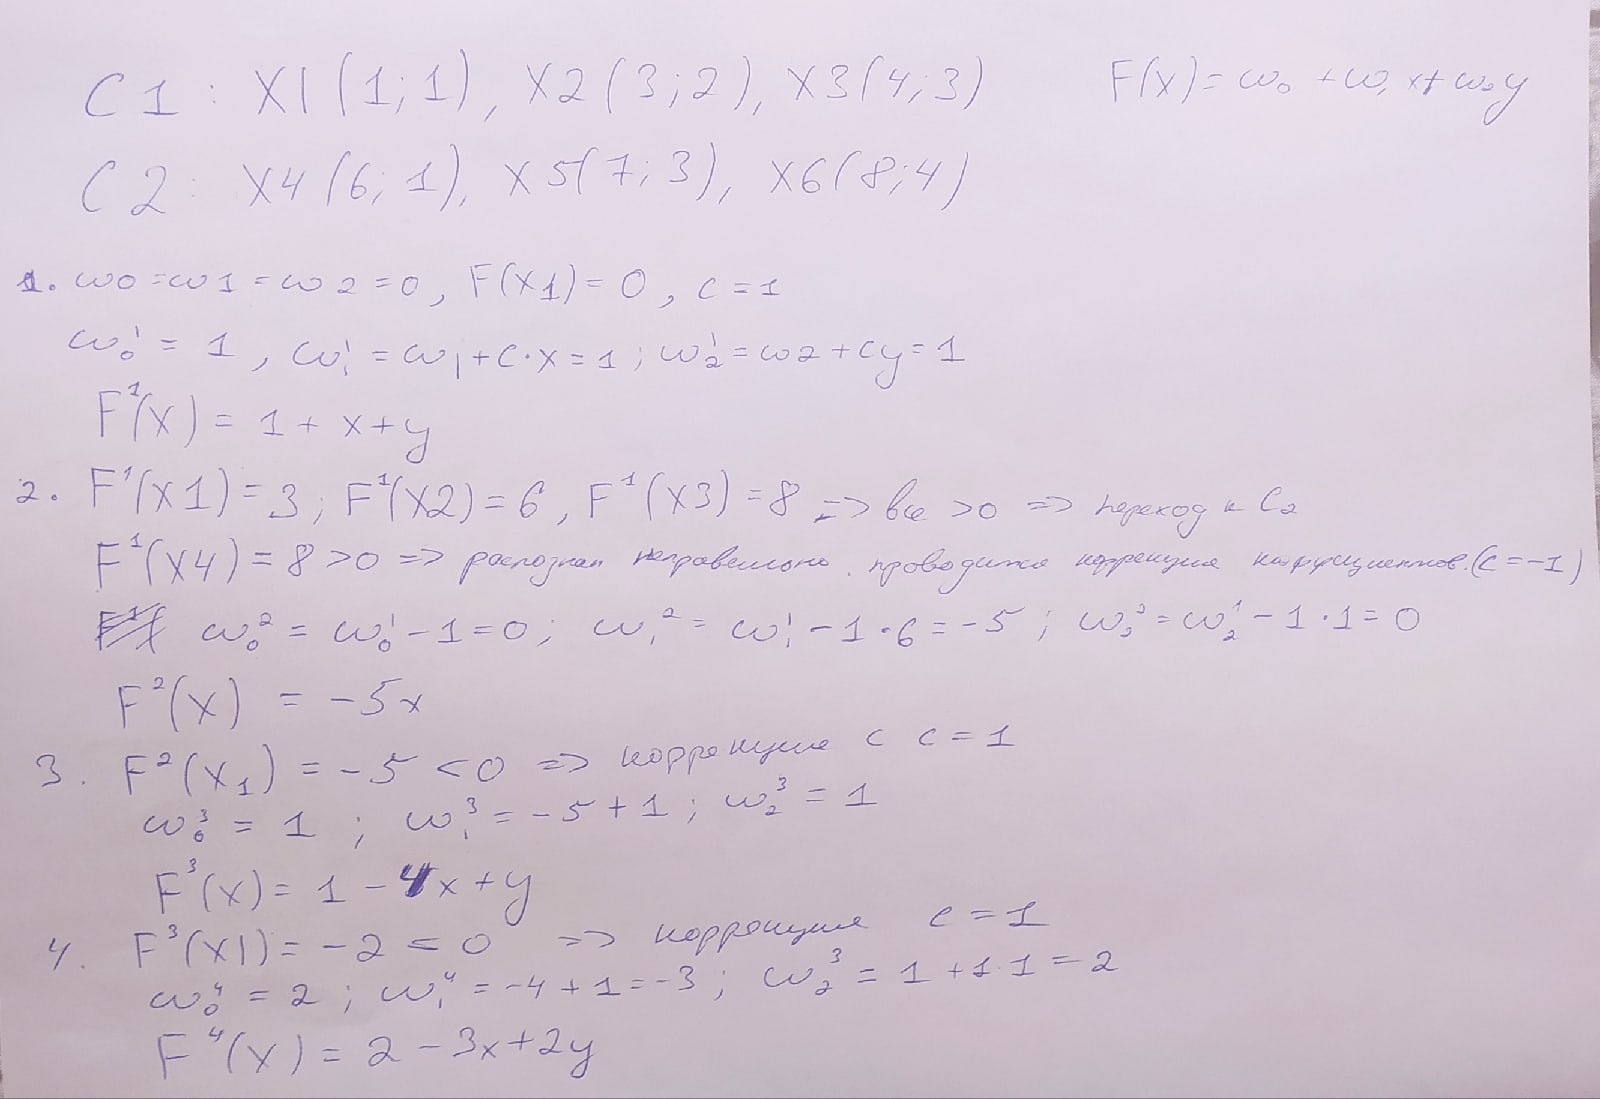 C1: X1(1;1), X2(3;2), X3(4;3) F(X)=ω₀+ω₁x+ω₂y
C2: X4(6;1), X5(7;3), X6(8;4)
1. ω0=ω1=ω2=0, F(X1)=0, c=1
ω₀¹=1, ω₁¹=ω₁+c·x=1; ω₂¹=ω2+cy=1
F¹(X)=1+x+y
2. F¹(X1)=3; F¹(X2)=6, F¹(X3)=8 => все >0 => переход к C2
F¹(X4)=8>0 => распознан неправильно. проводится коррекция коэффициентов.(c=-1)
ω₀²=ω₀¹-1=0; ω₁²=ω₁¹-1·6=-5; ω₂²=ω₂¹-1·1=0
F²(X) = -5x
3. F²(X₁) = -5<0 => коррекция с c=1
ω₀³=1; ω₁³=-5+1; ω₂³=1
F³(X)=1-4x+y
4. F³(X1)=-2<0 => коррекция c=1
ω₀⁴=2; ω₁⁴=-4+1=-3; ω₂³=1+1·1=2
F⁴(X)=2-3x+2y